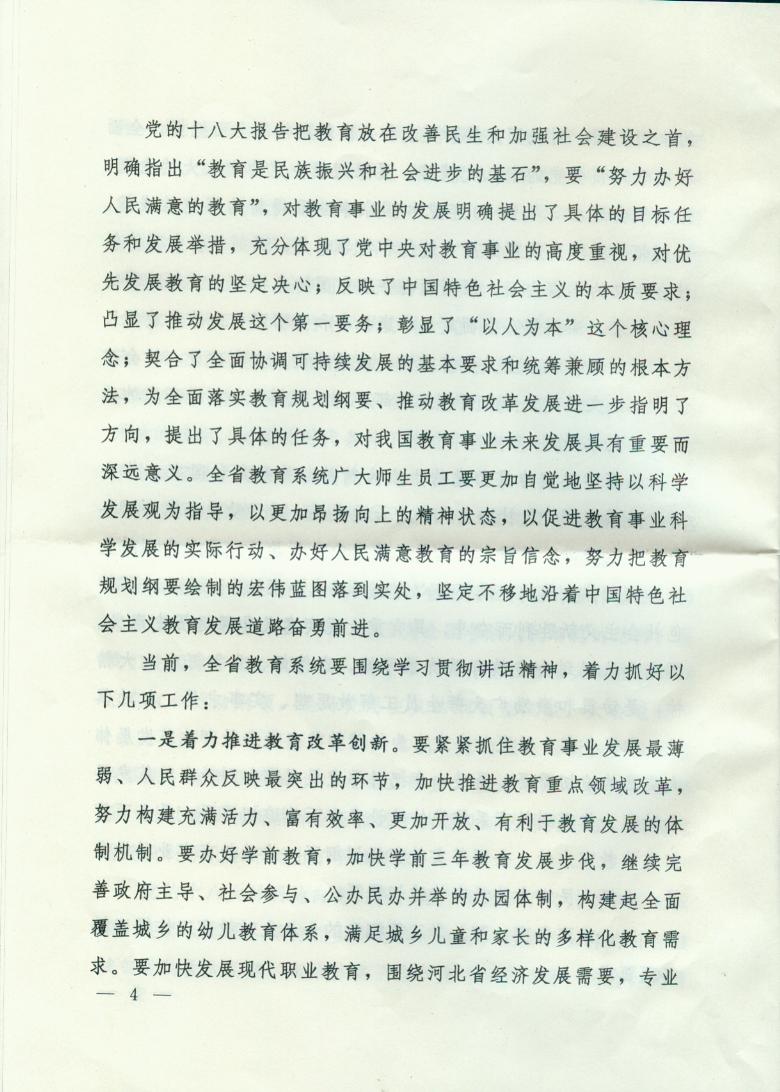 党的十八大报告把教育放在改善民生和加强社会建设之首，
明确指出“教育是民族振兴和社会进步的基石”，要“努力办好
人民满意的教育”，对教育事业的发展明确提出了具体的目标任
务和发展举措，充分体现了党中央对教育事业的高度重视，对优
先发展教育的坚定决心；反映了中国特色社会主义的本质要求；
凸显了推动发展这个第一要务；彰显了“以人为本”这个核心理
念；契合了全面协调可持续发展的基本要求和统筹兼顾的根本方
法，为全面落实教育规划纲要、推动教育改革发展进一步指明了
方向，提出了具体的任务，对我国教育事业未来发展具有重要而
深远意义。全省教育系统广大师生员工要更加自觉地坚持以科学
发展观为指导，以更加昂扬向上的精神状态，以促进教育事业科
学发展的实际行动、办好人民满意教育的宗旨信念，努力把教育
规划纲要绘制的宏伟蓝图落到实处，坚定不移地沿着中国特色社
会主义教育发展道路奋勇前进。
当前，全省教育系统要围绕学习贯彻讲话精神，着力抓好以
下几项工作：
一是着力推进教育改革创新。要紧紧抓住教育事业发展最薄
弱、人民群众反映最突出的环节，加快推进教育重点领域改革，
努力构建充满活力、富有效率、更加开放、有利于教育发展的体
制机制。要办好学前教育，加快学前三年教育发展步伐，继续完
善政府主导、社会参与、公办民办并举的办园体制，构建起全面
覆盖城乡的幼儿教育体系，满足城乡儿童和家长的多样化教育需
求。要加快发展现代职业教育，围绕河北省经济发展需要，专业
— 4 —